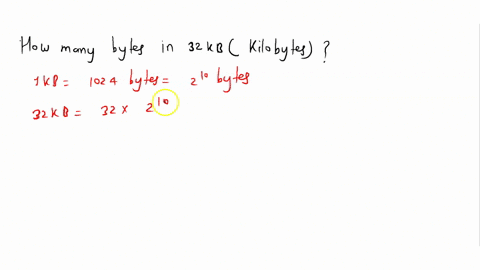 How many bytes in 32KB ( Kilobytes) ?
1KB = 1024 bytes = 2^10 bytes
32KB = 32 x 2^10